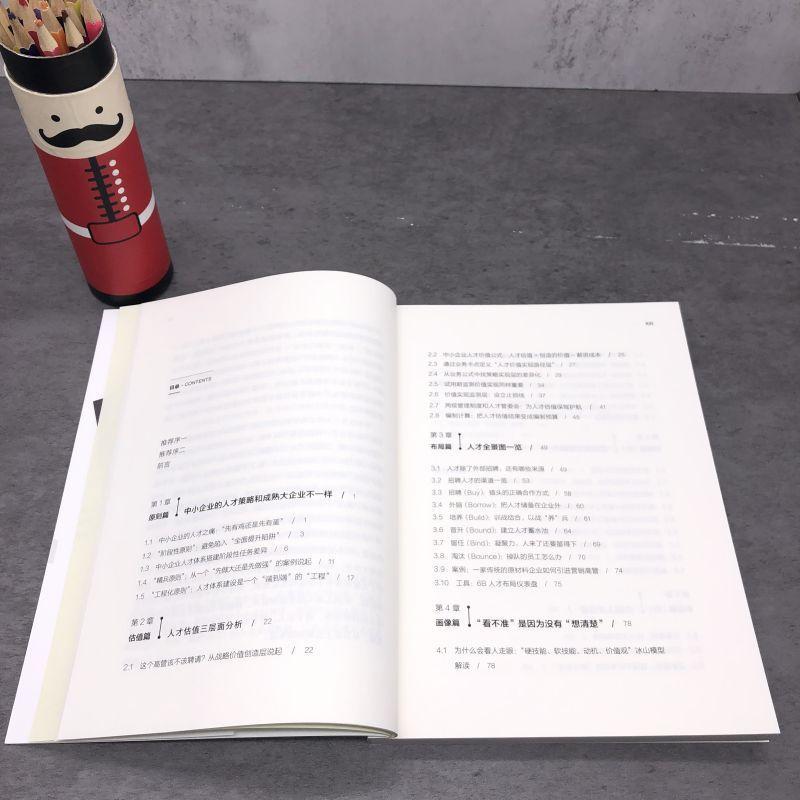 目录 · CONTENTS
推荐序一
推荐序二
前言
第 1 章
原则篇 中小企业的人才策略和成熟大企业不一样 / 1
1.1 中小企业的人才之痛：“先有鸡还是先有蛋” / 1
1.2 “阶段性原则”：避免陷入“全面提升陷阱” / 3
1.3 中小企业人才体系搭建阶段性任务差异 / 6
1.4 “精兵原则”：从一个“先做大还是先做强”的案例说起 / 11
1.5 “工程化原则”：人才体系建设是一个“端到端”的“工程” / 17
第 2 章
估值篇 人才估值三层面分析 / 22
2.1 这个高管该不该聘请？从战略价值创造层说起 / 22
2.2 中小企业人才价值公式：人才估值＝创造的价值－解退成本 / 26
2.3 通过业务卡点定义“人才价值实现路径层” / 27
2.4 从业务公式中找策略实现层的差异化 / 29
2.5 试用期监测价值实现同样重要 / 34
2.6 价值实现监测层：设立止损线 / 37
2.7 两级管理制度和人才管委会：为人才估值保驾护航 / 41
2.8 编制计算：把人才估值结果变成编制预算 / 45
第 3 章
布局篇 人才全景图一览 / 49
3.1 人才除了外部招聘，还有哪些来源 / 49
3.2 招聘人才的渠道一览 / 53
3.3 招聘（Buy）：猎头的正确合作方式 / 58
3.4 外脑（Borrow）：把人才储备在企业外 / 60
3.5 培养（Build）：训战结合，以战“养”兵 / 61
3.6 晋升（Bound）：建立人才蓄水池 / 64
3.7 留任（Bind）：凝聚力，人来了还要留得下 / 67
3.8 淘汰（Bounce）：掉队的员工怎么办 / 70
3.9 案例：一家传统的原材料企业如何引进营销高管 / 74
3.10 工具：6B 人才布局仪表盘 / 75
第 4 章
画像篇 “看不准”是因为没有“想清楚” / 78
4.1 为什么会看人走眼：“硬技能、软技能、动机、价值观”冰山模型
解读 / 78